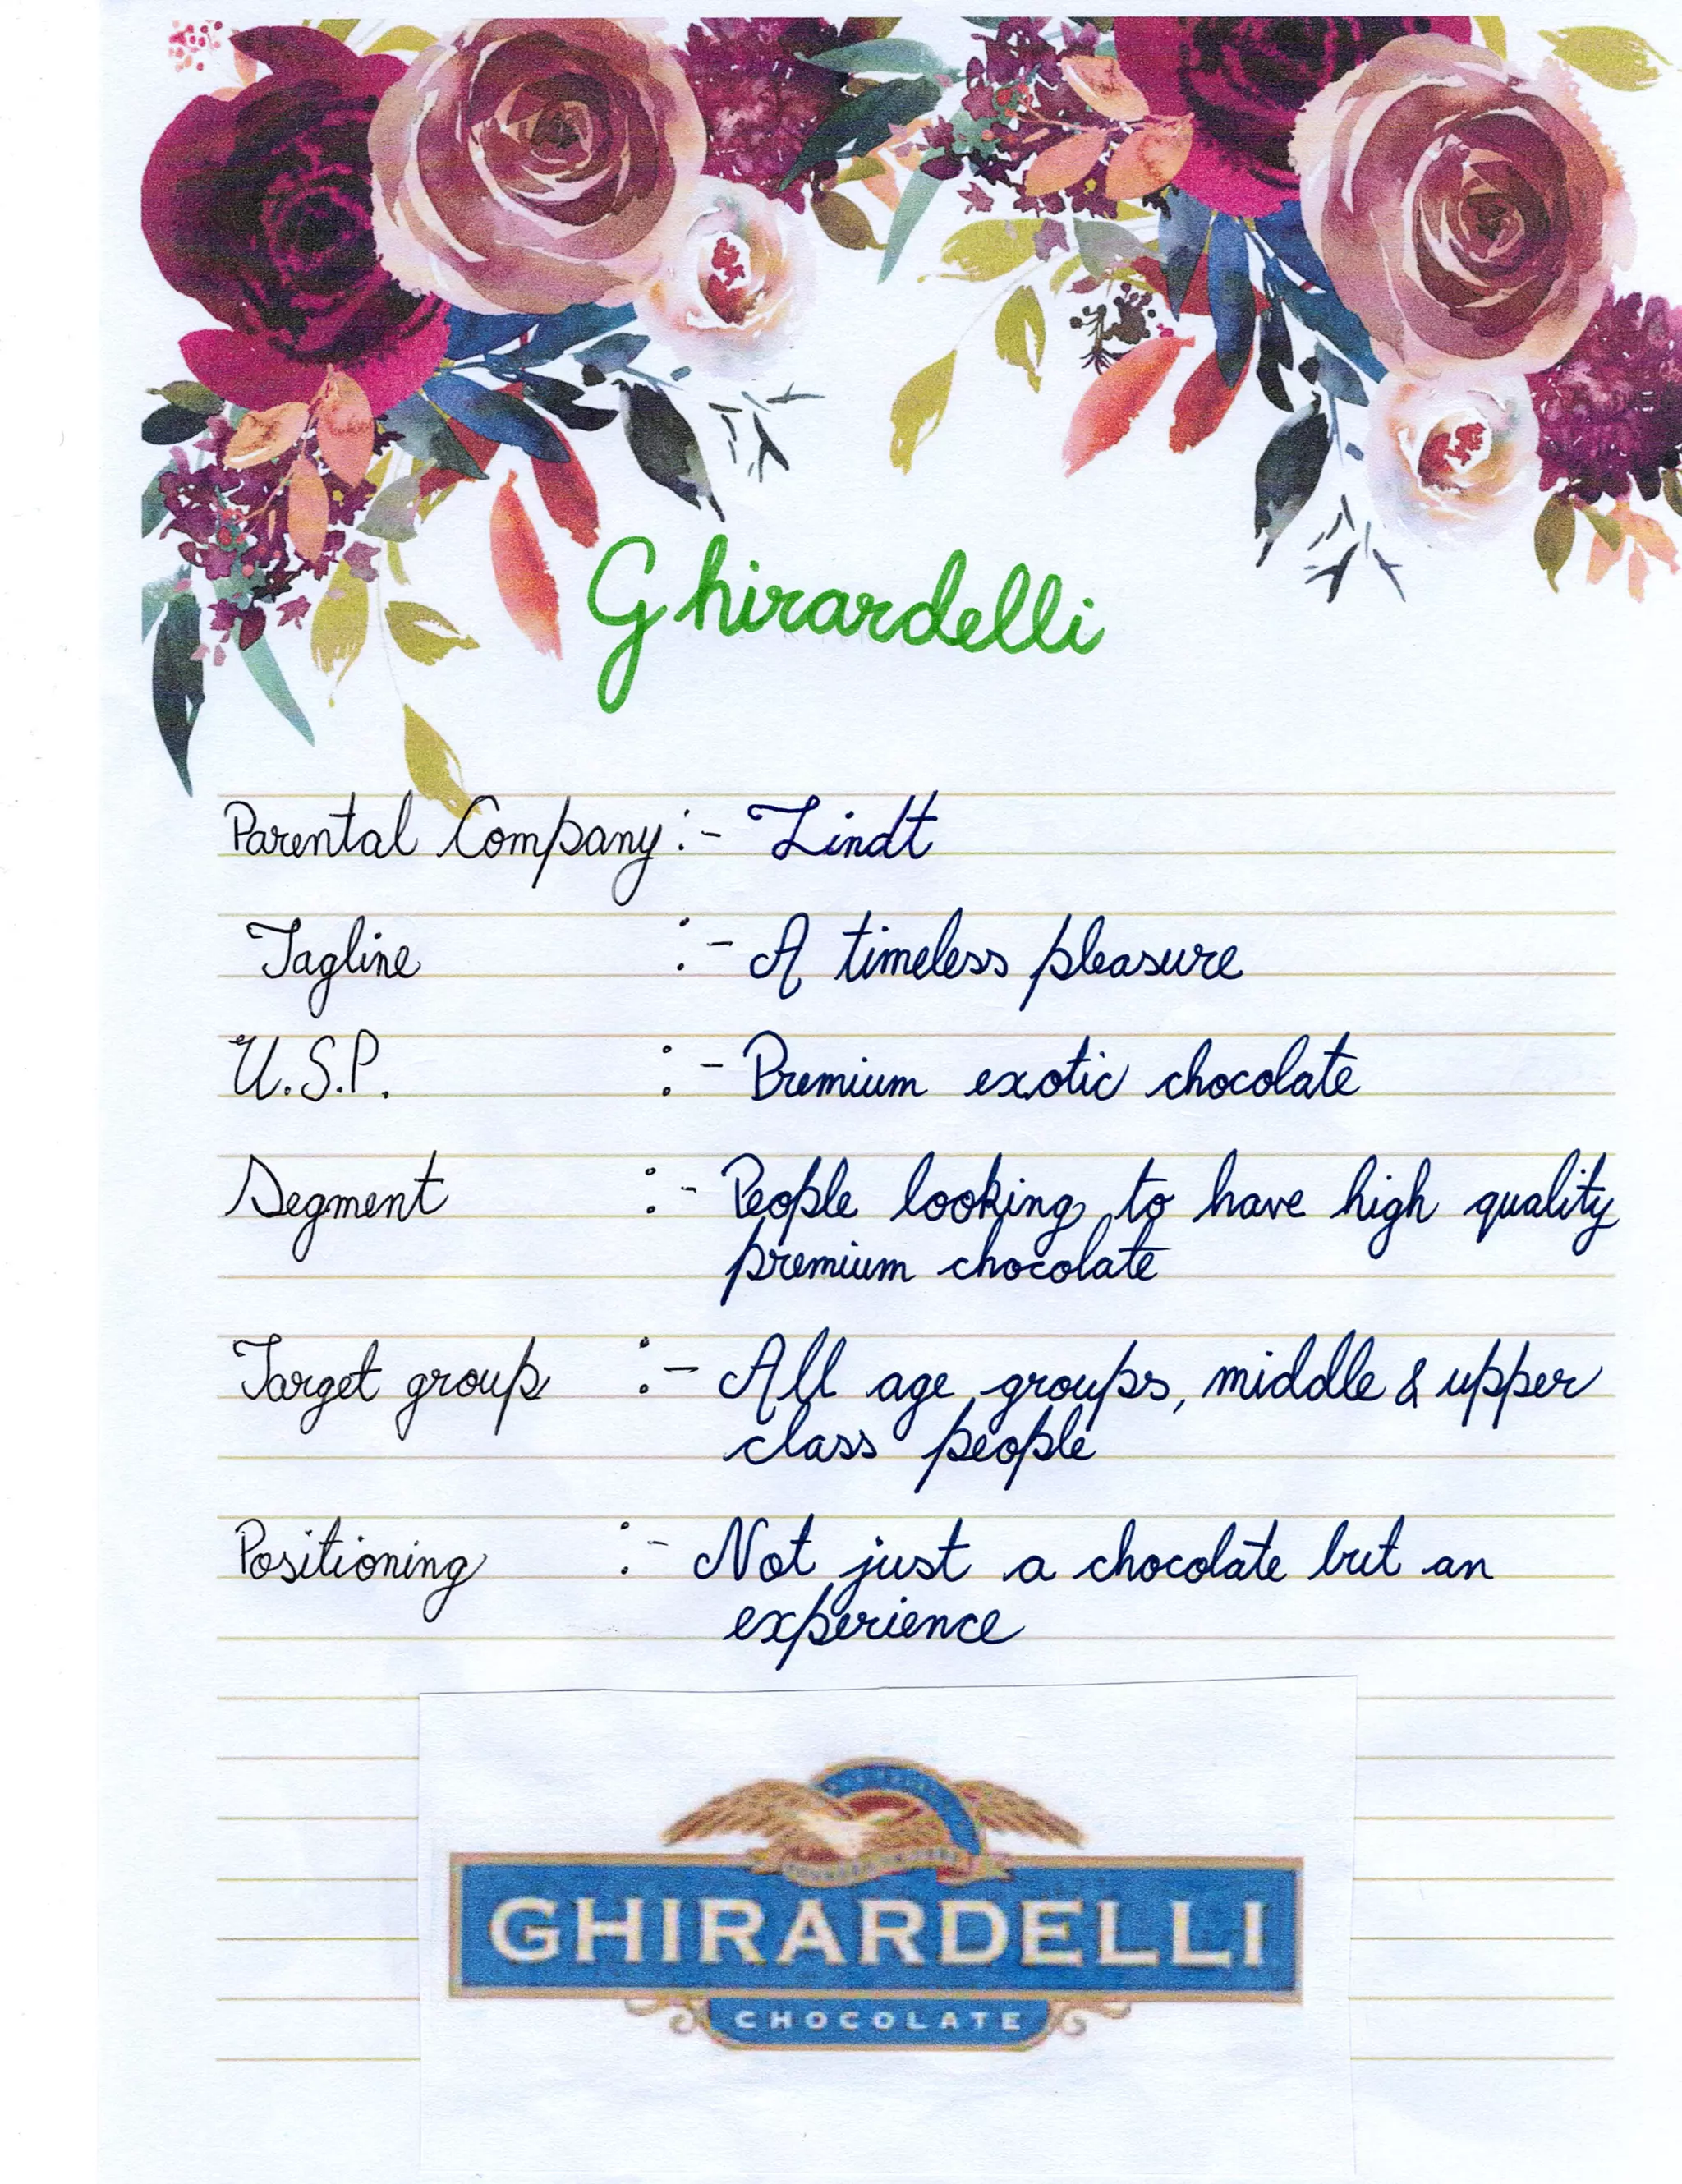 Ghirardelli
Parental Company :- Lindt
Tagline :- A timeless pleasure
U.S.P. :- Premium exotic chocolate
Segment :- People looking to have high quality
premium chocolate
Target group :- All age groups, middle & upper
class people
Positioning :- Not just a chocolate but an
experience
GHIRARDELLI
CHOCOLATE